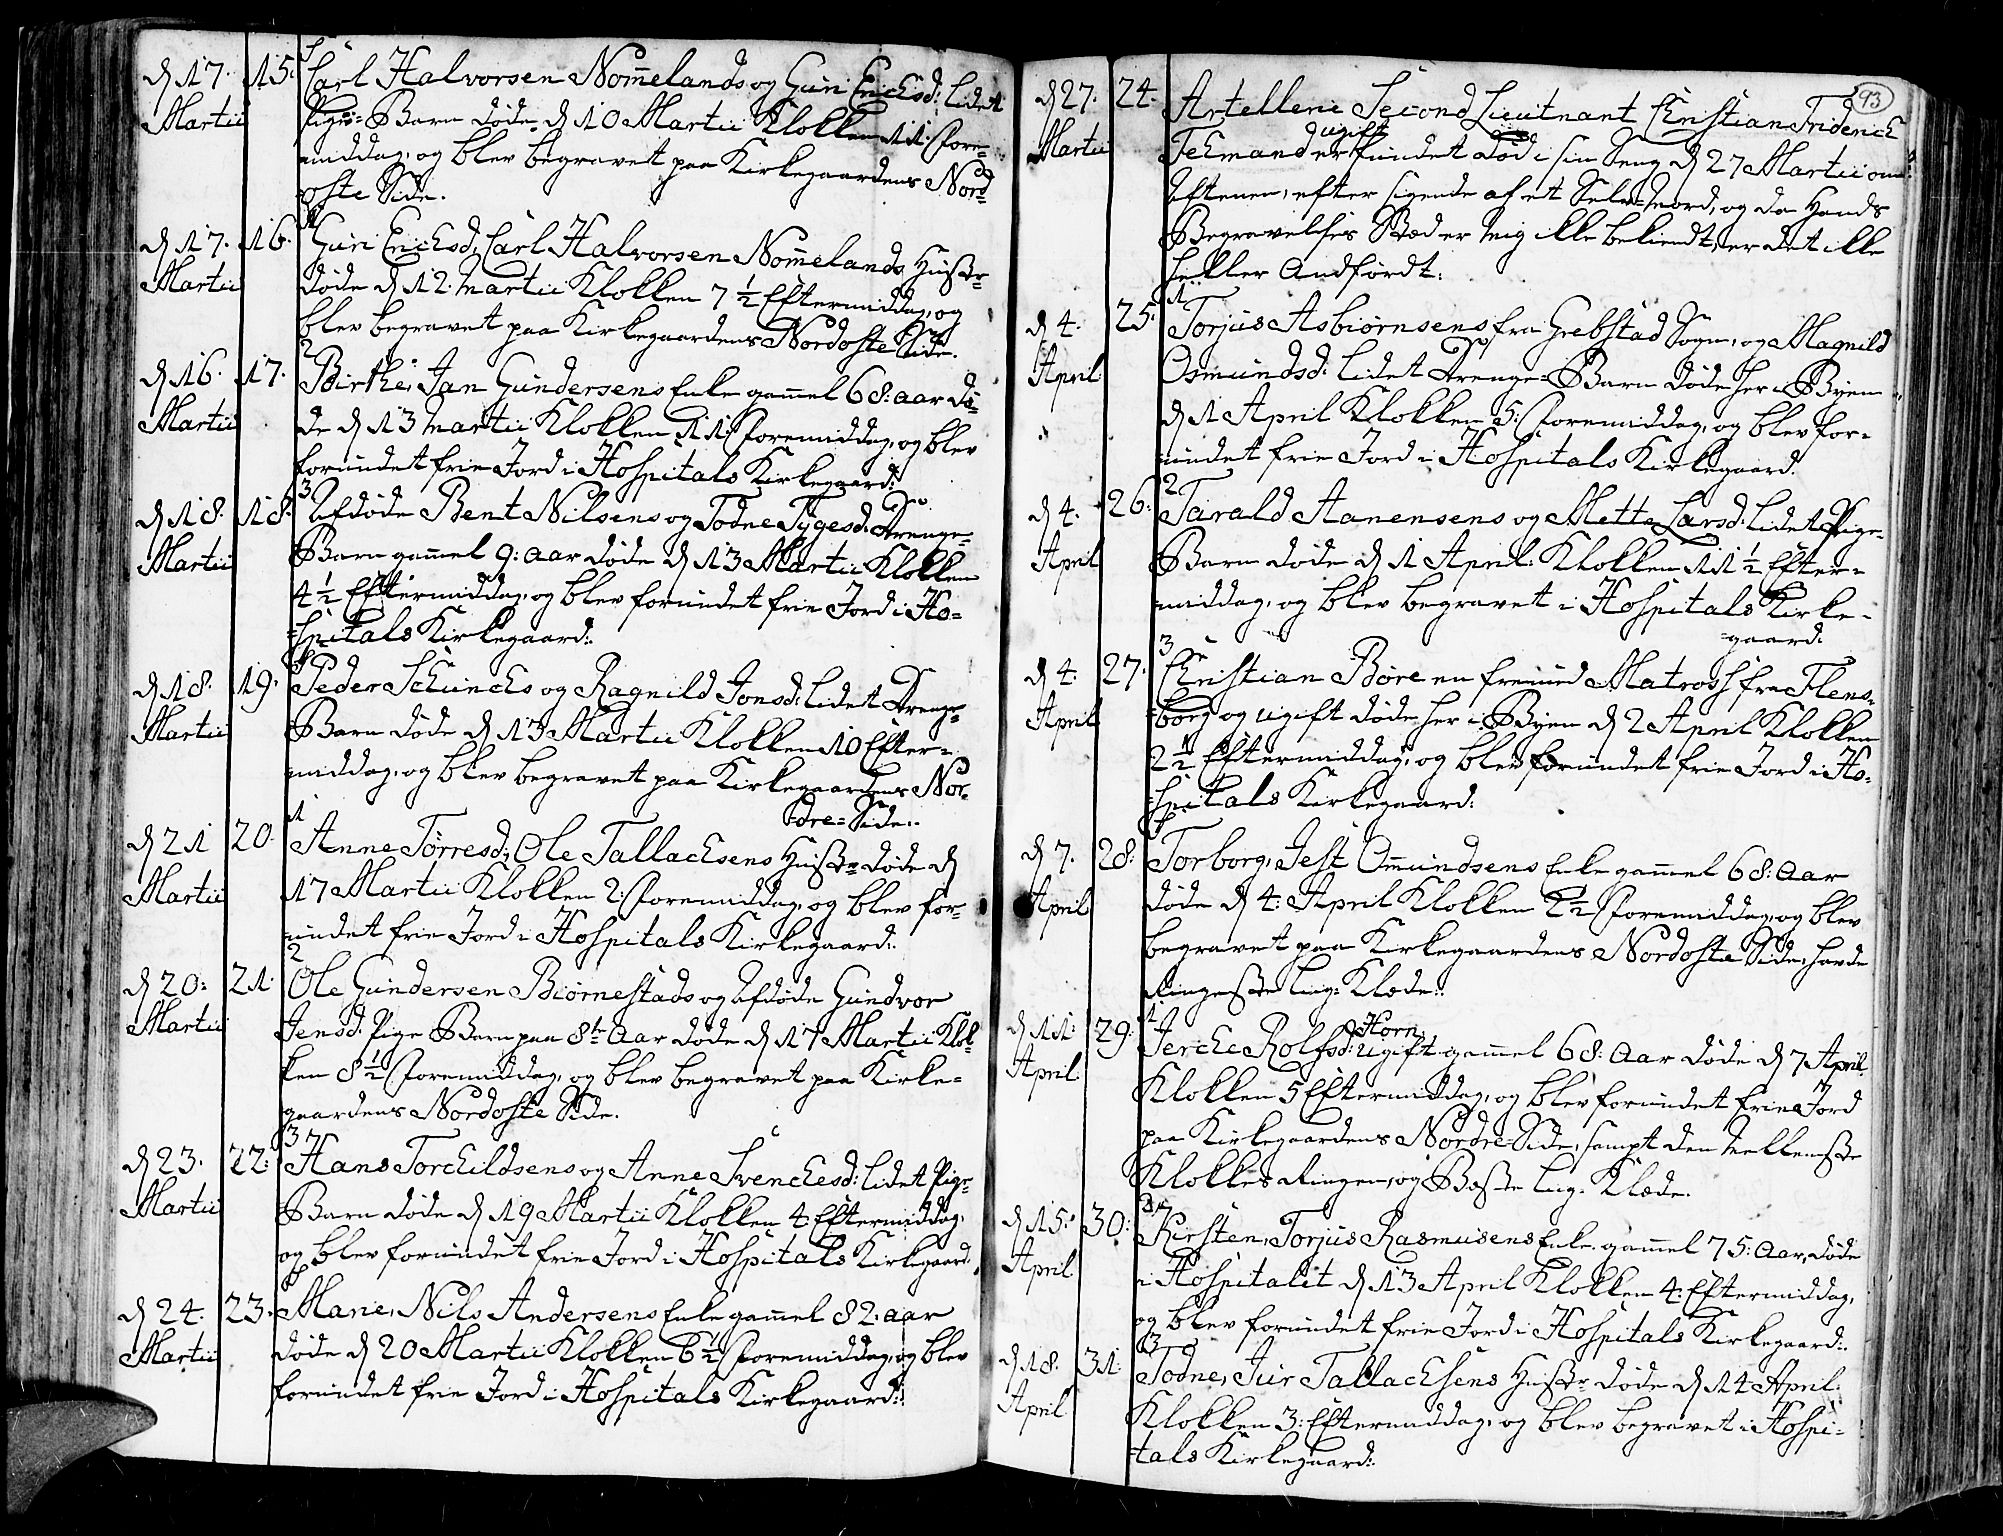 d 17. 15. Carl Halvorsen Nom̄elands og Guri Erichsd: lidet
Martii Pige-Barn døde d 10 Martii Klokken 11: fore-
middag, og blev begravet paa Kirkegaardens Nord-
oste Side.
1
d 17. 16. Guri Erichsd, Carl Halvorsen Nom̄elands Hustr-
Martii døde d 12. Martii Klokken 7 1/2 Eftermiddag, og
blev begravet paa Kirkegaardens Nordoste Side.
2
d 16. 17. Birthe, Jan Gundersens Enke gam̄el 68: aar dø-
Martii de d 13 Martii Klokken 11: foremiddag, og blev
forundet frie Jord i Hospitals Kirkegaard:
3
d 18. 18. Afdøde Bent Nilsens og Todne Tygesd: Drenge-
Martii Barn gam̄el 9: aar døde d 13 Martii Klokken
4 1/2 Eftermiddag, og blev forundet frie Jord i Ho-
-spitals Kirkegaard:
d 18. 19. Peder Schuncks og Ragnild Jonsd: lidet Drenge-
Martii Barn døde d 13 Martii Klokken 10 Efter-
middag, og blev begravet paa Kirkegaardens Nor-
-dre-Side:
1
d 21 20. Anne Tørresd, Ole Tallachsens Hustr: døde d
Martii 17 Martii Klokken 2: foremiddag, og blev for-
undet frie Jord i Hospitals Kirkegaard:
2
d 20: 21. Ole Gundersen Biørnestads og Afdøde Gundvor
Martii Jensd: Pige Barn paa 8te Aar døde d 17 Martii Klok-
ken 8 1/2 foremiddag, og blev begravet paa Kirke-
gaardens Nordoste Side.
3
d 23. 22: Hans Torchildsens og Anne Svenchesd: lidet Pige-
Martii Barn døde d 19 Martii Klokken 4: Eftermiddag,
og blev forundet frie Jord i Hospitals Kirkegaard.
d 24. 23. Marie, Nils Andersens Enke gam̄el 82: aar
Martii døde d 20 Martii Klokken 6 1/2 foremiddag, og blev
forundet frie Jord i Hospitals Kirkegaard:
93
d 27. 24. Artellerie Second Lieutnant Christian Friderich
ugift
Martii Tehmand er fundet død i sin Seng d 27 Martii om
Aftenen, efter sigende af et Selv-Mord, og da Hands
Begravelses Stæd er mig ikke bekiendt, er det ikke
heller Andført:
1
d 4. 25. Torjus Asbiørnsens fra Grebstad Sogn, og Magnild
April Osmundsd: lidet Drenge-Barn døde her i Byen
d 1 April Klokken 5: foremiddag, og blev for-
undet frie Jord i Hospitals Kirkegaard.
2
d 4. 26. Tarald Aanensens og Mette Larsd: lidet Pige-
April Barn døde d 1 April: Klokken 11 1/2 Efter-
middag, og blev begravet i Hospitals Kirke-
-gaard:
3
d 4. 27. Christian Børe en fremmed Matros fra Flens-
April -borg og ugift døde her i Byen d 2 April Klokken
2 1/2 Eftermiddag, og blev forundet frie Jord i Ho-
-spitals Kirkegaard:
d 7. 28. Torborg, Jest Omundsens Enke gam̄el 68: Aar
April døde d 4: April Klokken 2 1/2 foremiddag, og blev
begravet paa Kirkegaardens Nordoste Side, havde
Ringeste Liig-Klæde:
1
Horn,
d 11: 29. Jerche Rolfsd: ugift gam̄el 68: Aar døde d 7 April
April: Klokken 5 Eftermiddag, og blev forundet frie Jord
paa Kirkegaardens Nordre-Side, sampt den Mellemste
Klokkes Ringen, og Beste Liig-Klæde.
2
d 15. 30: Kirsten, Torjus Rasmusens Enke gam̄el 75: Aar, døde
April i Hospitalet d 13 April Klokken 4: Eftermiddag,
og blev forundet frie Jord i Hospitals Kirkegaard:
3
d 18. 31: Todne, Juir Tallachsens Hustr: døde d 14 April:
April Klokken 3: Eftermiddag, og blev begravet i Hospi-
-tals Kirkegaard: